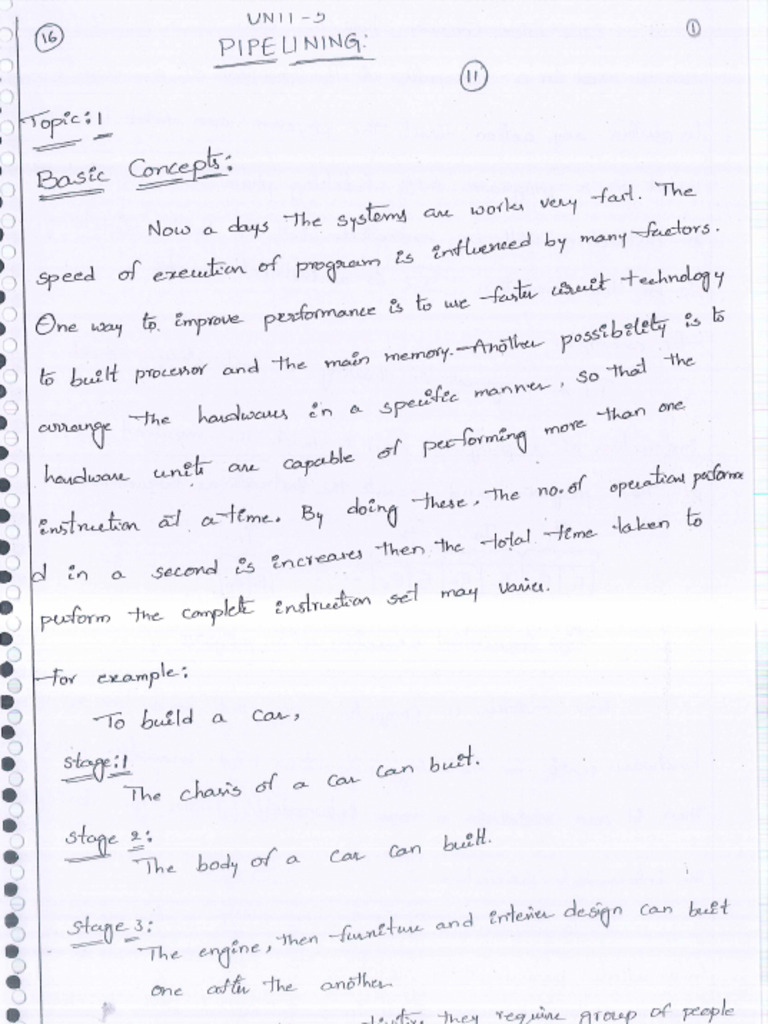 16
UNIT-5
1
PIPELINING:
11
Topic:1
Basic Concepts:
Now a days the systems are works very fast. The
speed of execution of program is influenced by many factors.
One way to improve performance is to use faster circuit technology
to built processor and the main memory. Another possibility is to
arrange the hardwares in a specific manner, so that the
hardware units are capable of performing more than one
instruction at a time. By doing these, the no. of operations performe
d in a second is increases then the total time taken to
perform the complete instruction set may varies.
for example:
To build a car,
Stage:1
The chasis of a car can built.
Stage 2:
The body of a car can built.
Stage 3:
The engine, then furniture and interier design can built
one after the another.
they require group of people